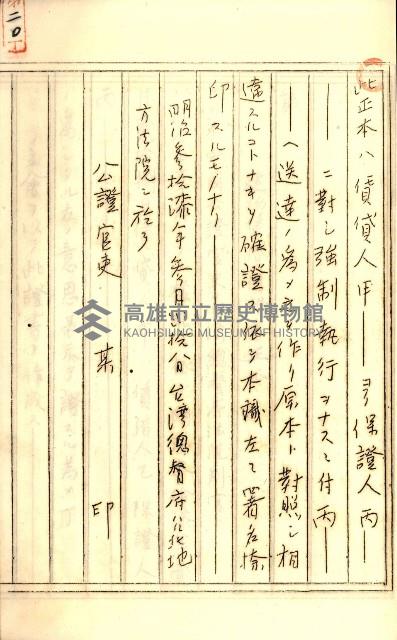 二〇
此正本ハ賃貸人甲——ヨリ保證人丙——
——ニ對シ強制執行ヲナスニ付丙——
——ヘ送達ノ為メ之ヲ作リ原本ト對照シ相
違スルコトナキヲ確證スル依テ本職左ニ署名捺
印スルモノナリ——
明治參拾漆年參月貳拾八日台灣總督府台北地
方法院ニ於テ
公證官吏 某 印
高雄市立歷史博物館
KAOHSIUNG MUSEUM OF HISTORY